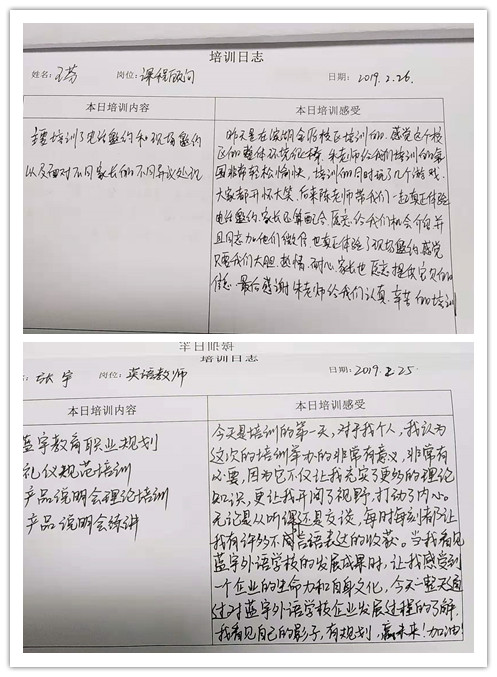 培训日志
姓名: 王芬 岗位: 课程顾问 日期: 2019.2.26.
本日培训内容 本日培训感受
主要培训了电话邀约和现场邀约
以及面对不同家长的不同异议处理
昨天是在滨湖金辰校区培训的. 感觉这个校
区的整体环境很棒. 朱老师给我们培训的氛
围非常轻松愉快, 培训的同时玩了几个游戏.
大家都开怀大笑. 后来陈老师带我们一起真正体验
电话邀约 家长还算配合. 愿意给我们机会介绍并
且同意加他们微信. 也真正体验了现场邀约 感觉
只要我们大胆. 热情. 耐心. 家长也愿意提供宝贝的
信息. 最后感谢朱老师给我们认真. 辛苦的培训
培训日志
张宇 岗位: 英语教师 日期: 2019.2.25.
本日培训内容 本日培训感受
蓝宇教育职业规划
礼仪规范培训
产品说明会理论培训
产品说明会练讲
今天是培训的第一天, 对于我个人, 我认为
这次的培训举办的非常有意义, 非常有
必要, 因为它不仅让我充实了更多的理论
知识, 更让我开阔了视野, 打动了内心。
无论是从听课还是交谈, 每时每刻都让
我有许多不同言语表达的收获。当我看见
蓝宇外语学校的发展成果时, 让我感受到
一个企业的生命力和自身文化, 今天一整天通
过对蓝宇外语学校企业发展过程的了解
我看见自己的影子, 有规划, 赢未来! 加油!